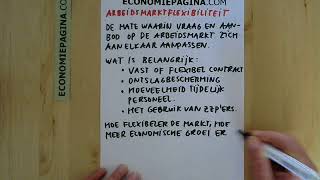 ECONOMIEPAGINA.COM
ARBEIDSMARKTFLEXIBILITEIT
DE MATE WAARIN VRAAG EN AAN-
BOD OP DE ARBEIDSMARKT ZICH
AAN ELKAAR AANPASSEN.
WAT IS BELANGRIJK:
• VAST OF FLEXIBEL CONTRACT
• ONTSLAGBESCHERMING
• HOEVEELHEID TIJDELIJK
PERSONEEL.
• HET GEBRUIK VAN ZZP'ERS.
HOE FLEXIBELER DE MARKT, HOE
MEER ECONOMISCHE GROEI ER
ECONOMIEPAGINA.COM